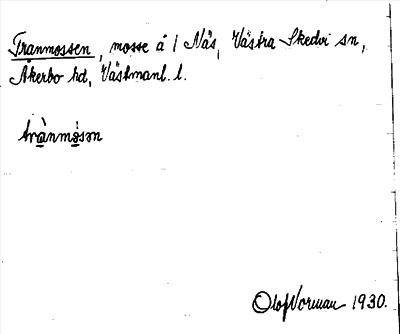 Tranmossen, mosse å 1 Näs, Västra Skedvi sn,
Åkerbo hd, Västmanl. l.
trànmòsən
Olof Norman 1930.